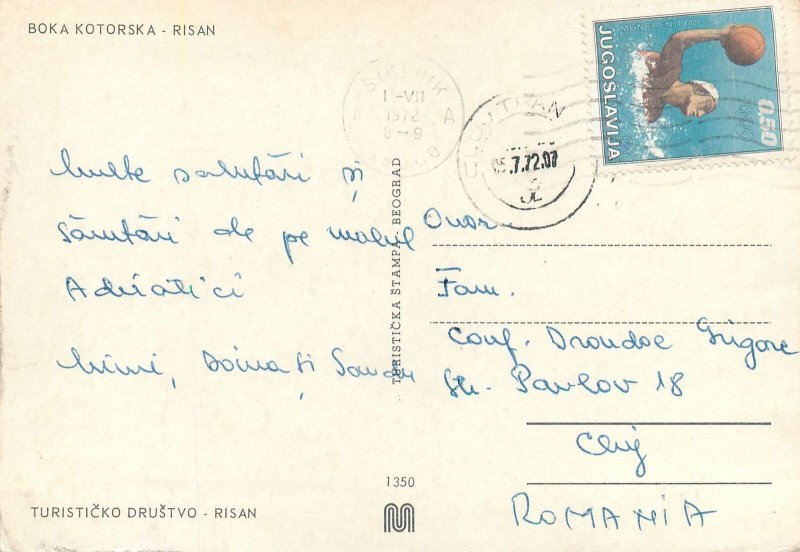 BOKA KOTORSKA - RISAN
MÜNCHEN 1972
JUGOSLAVIJA
0.50
1-VII
1972
8-9
A
CLUJ TRAN
05.7.72.07
Multe salutări și
sărutări de pe malul
Adriaticii
Mimi, Doina și Sandu
TURISTIČKA ŠTAMPA BEOGRAD
Onor.
Fam.
Conf. Drondoe Grigore
Str. Pavlov 18
Cluj
ROMANIA
1350
TURISTIČKO DRUŠTVO - RISAN